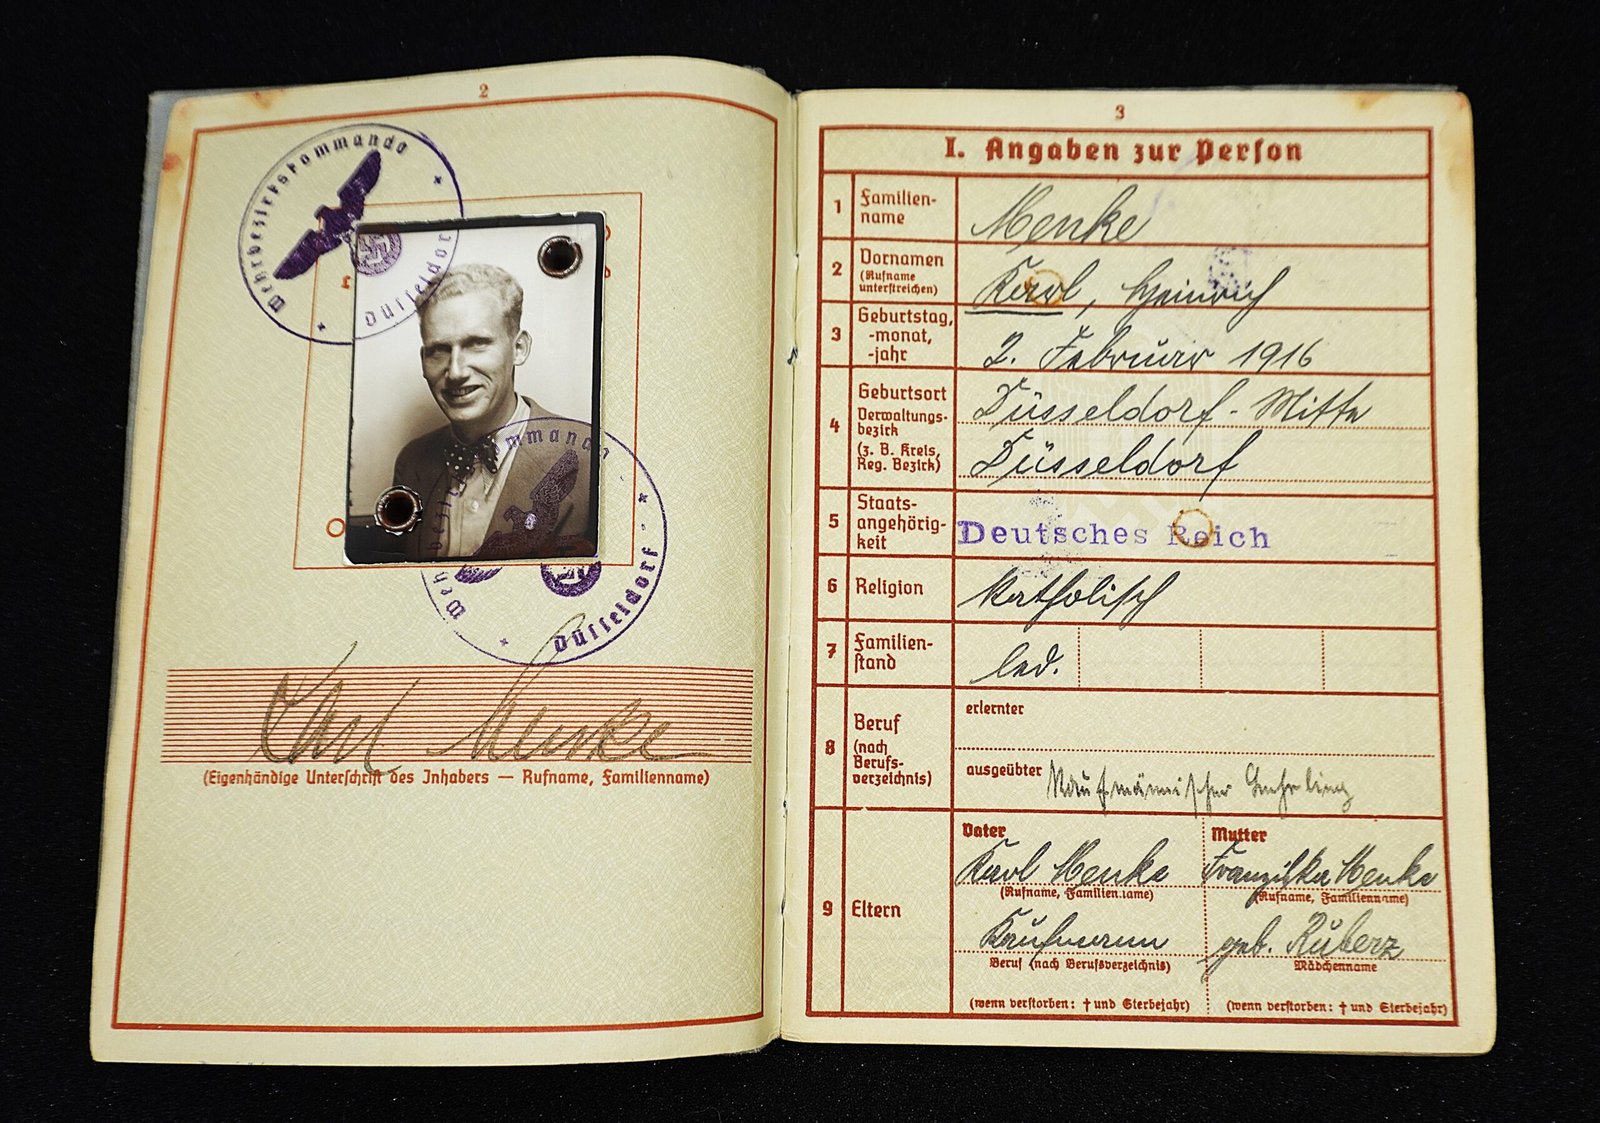 2
Wehrbezirkskommando
Düsseldorf
mmando
Düsseldorf
Karl Menke
(Eigenhändige Unterschrift des Inhabers — Rufname, Familienname)
3
I. Angaben zur Person
1 Familien-
name
Menke
2 Vornamen
(Rufname
unterstreichen)
Karl, Heinrich
3 Geburtstag,
-monat,
-jahr
2. Februar 1916
4 Geburtsort
Verwaltungs-
bezirk
(z. B. Kreis,
Reg. Bezirk)
Düsseldorf-Mitte
Düsseldorf
5 Staats-
angehörig-
keit
Deutsches Reich
6 Religion
katholisch
7 Familien-
stand
led.
8 Beruf
(nach
Berufs-
verzeichnis)
erlernter
ausgeübter Kaufmännischer Lehrling
9 Eltern
Vater
Karl Menke
(Rufname, Familienname)
Kaufmann
Beruf (nach Berufsverzeichnis)
(wenn verstorben: † und Sterbejahr)
Mutter
Franziska Menke
(Rufname, Familienname)
geb. Rüberz
Mädchenname
(wenn verstorben: † und Sterbejahr)